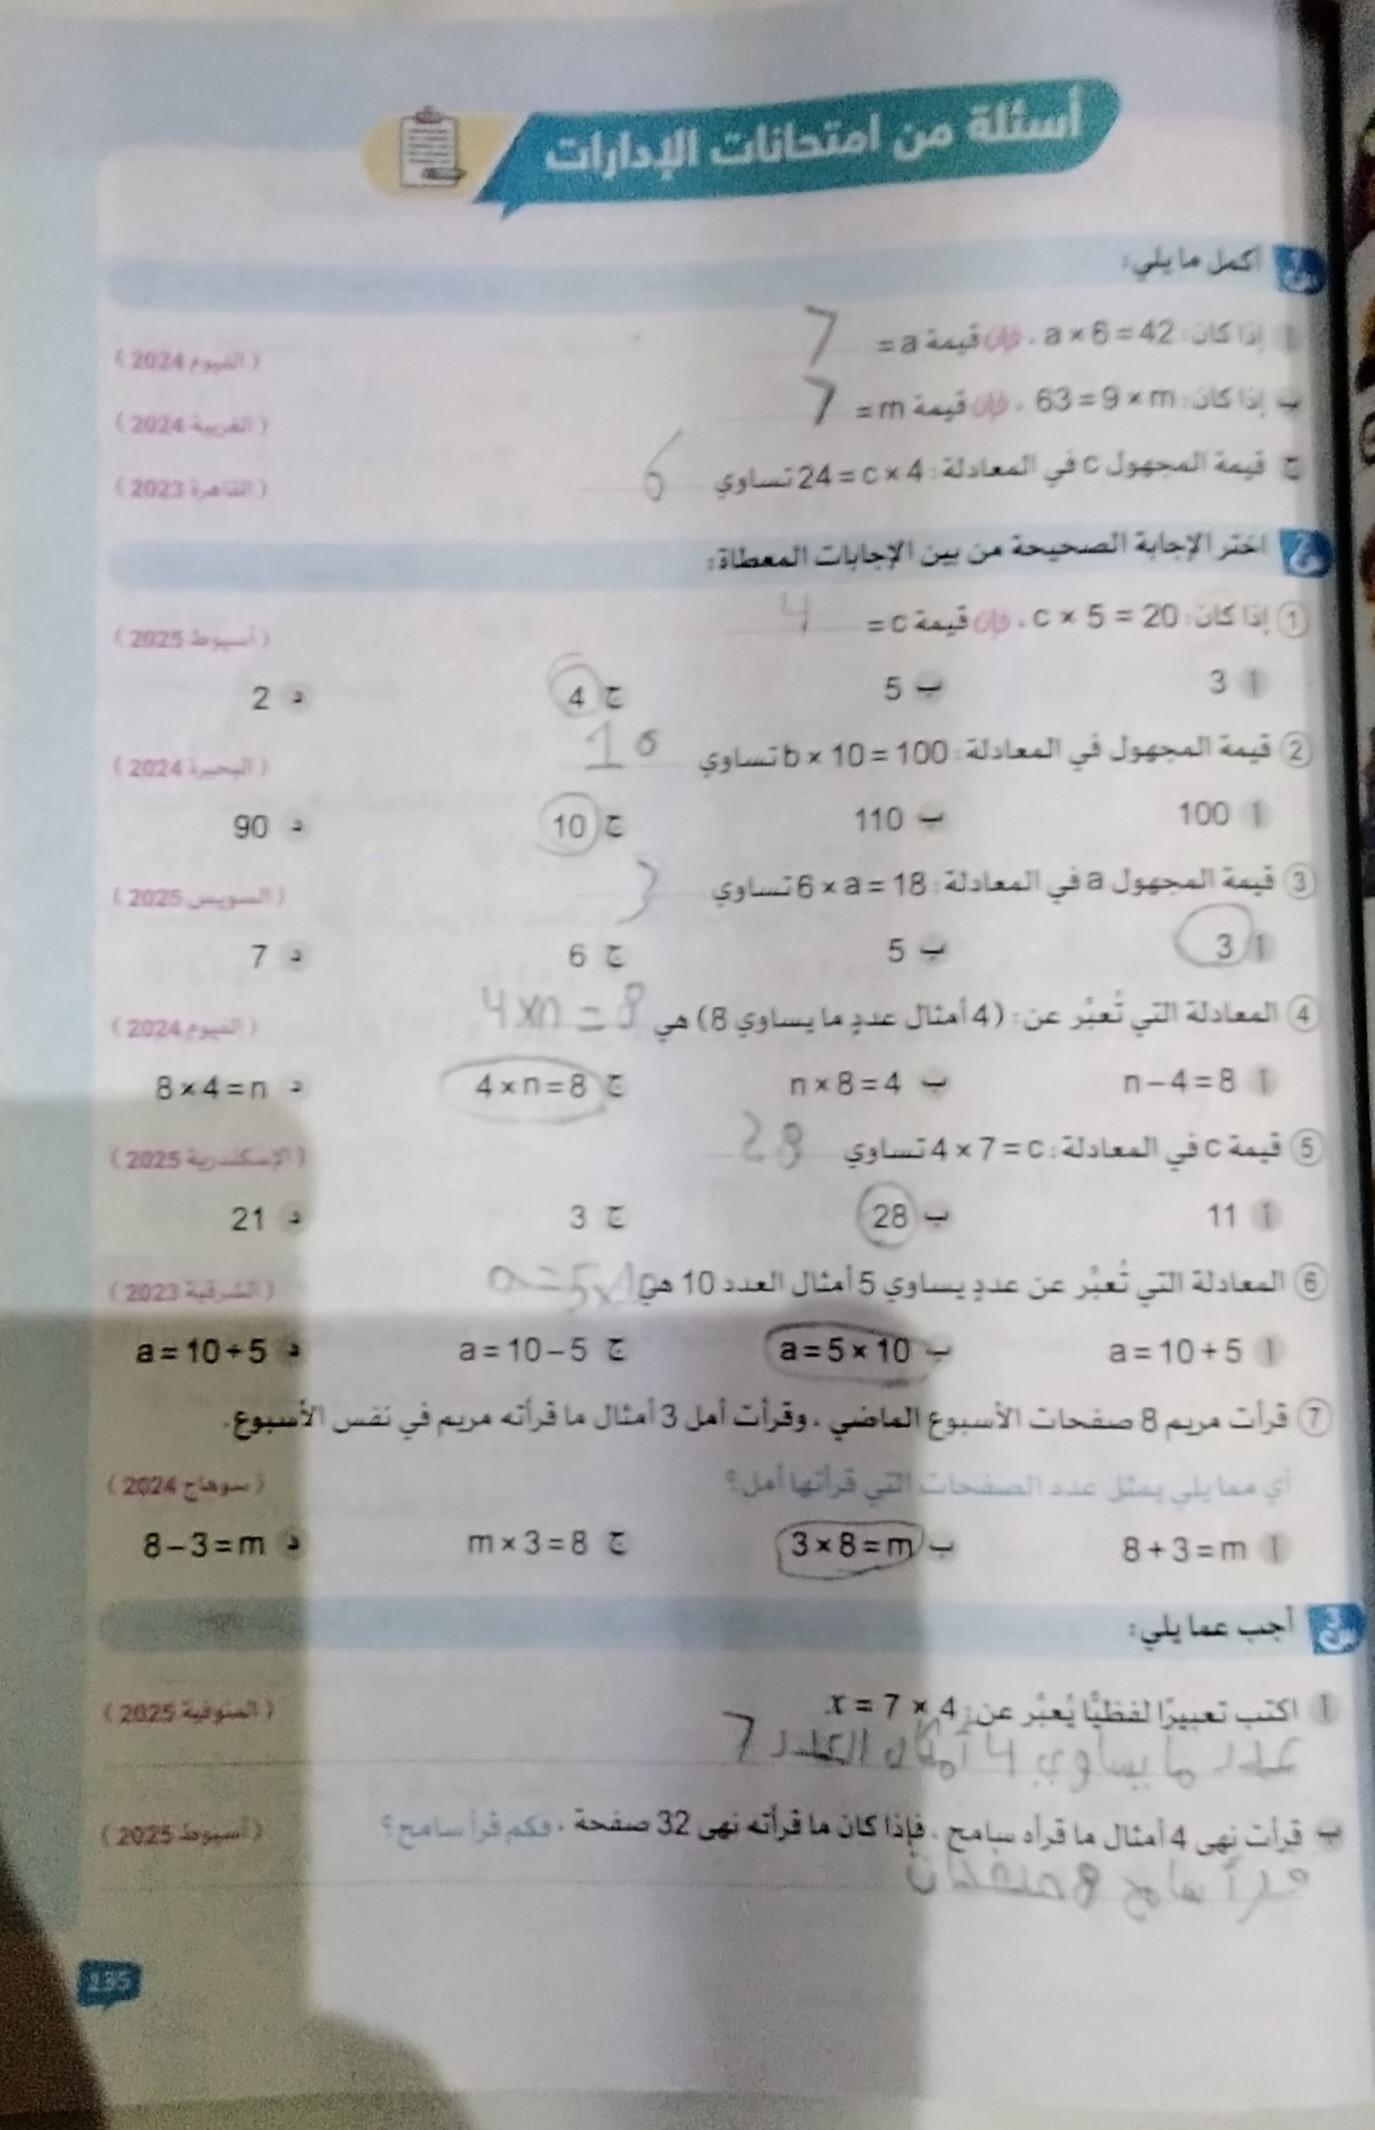 أسئلة من امتحانات الإدارات
س1 أكمل ما يلي:
أ إذا كان: a × 6 = 42 ، فإن قيمة a = 7 ( الفيوم 2024 )
ب إذا كان: 63 = 9 × m ، فإن قيمة m = 7 ( الغربية 2024 )
ج قيمة المجهول c في المعادلة: 24 = c × 4 تساوي 6 ( القاهرة 2023 )
س2 اختر الإجابة الصحيحة من بين الإجابات المعطاة:
1 إذا كان: c × 5 = 20 ، فإن قيمة c = 4 ( أسيوط 2025 )
أ 3 ب 5 ج 4 د 2
2 قيمة المجهول في المعادلة: b × 10 = 100 تساوي 10 ( البحيرة 2024 )
أ 100 ب 110 ج 10 د 90
3 قيمة المجهول a في المعادلة: 6 × a = 18 تساوي 3 ( السويس 2025 )
أ 3 ب 5 ج 6 د 7
4 المعادلة التي تُعبِّر عن: (4 أمثال عددٍ ما يساوي 8) هي 4xn=8 ( الفيوم 2024 )
أ n – 4 = 8 ب n × 8 = 4 ج 4 × n = 8 د 8 × 4 = n
5 قيمة c في المعادلة: 4 × 7 = c تساوي 28 ( الإسكندرية 2025 )
أ 11 ب 28 ج 3 د 21
6 المعادلة التي تُعبِّر عن عددٍ يساوي 5 أمثال العدد 10 هي a=5x10 ( الشرقية 2023 )
أ a = 10 + 5 ب a = 5 × 10 ج a = 10 – 5 د a = 10 ÷ 5
7 قرأت مريم 8 صفحات الأسبوع الماضي ، وقرأت أمل 3 أمثال ما قرأته مريم في نفس الأسبوع.
أي مما يلي يمثل عدد الصفحات التي قرأتها أمل؟ ( سوهاج 2024 )
أ 8 + 3 = m ب 3 × 8 = m ج m × 3 = 8 د 8 – 3 = m
س3 أجب عما يلي:
أ اكتب تعبيرًا لفظيًّا يُعبِّر عن: x = 7 × 4. ( المنوفية 2025 )
عدد ما يساوي 4 أمثال العدد 7
ب قرأت نهى 4 أمثال ما قرأه سامح ، فإذا كان ما قرأته نهى 32 صفحة ، فكم قرأ سامح؟ ( أسيوط 2025 )
قرأ سامح 8 صفحات
135